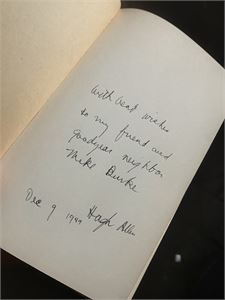 with best wishes
to my friend and
goodyear neighbor
Mike Burke
Dec 9 1949 Hugh Allen